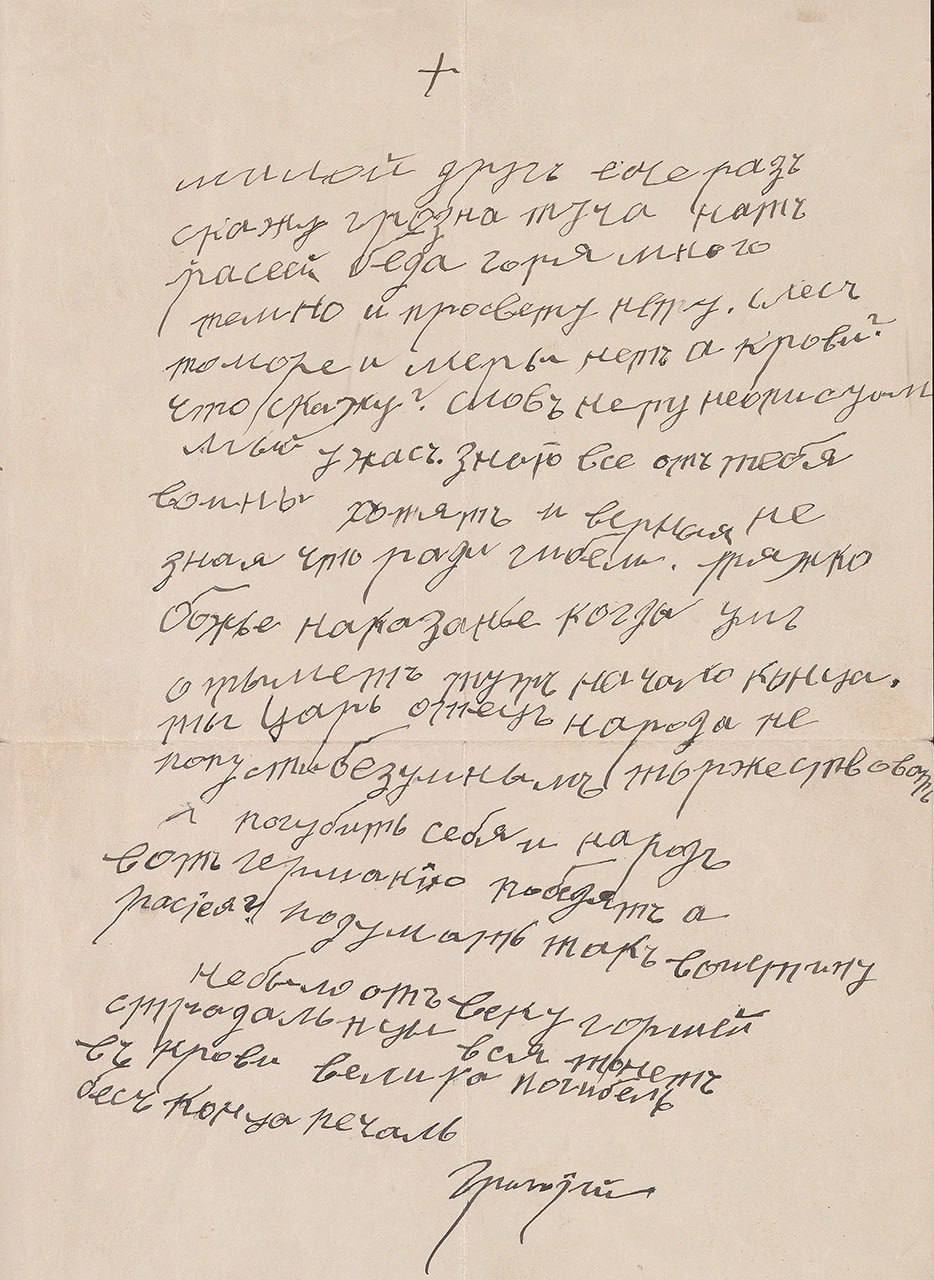 +
милой другъ есче разъ
скажу грозна туча натъ
расеей беда горя много
темно и просвету нету. слесъ
то море и меры нетъ а крови?
что скажу? словъ нету неописуом
мый ужасъ. знаю все отъ тебя
войны хотятъ и верная не
зная что ради гибели. тяжко
божье наказанье когда умъ
отыметъ тутъ начало конца.
ты царь отецъ народа не
попусти безумнымъ торжествовать
и погубить себя и народъ
вотъ германiю победятъ а
расiея? подумать такъ воистину
небыло отъ веку горшей
страдальницы вся тонетъ
въ крови велика погибель
бесъ конца печаль
Григорiй